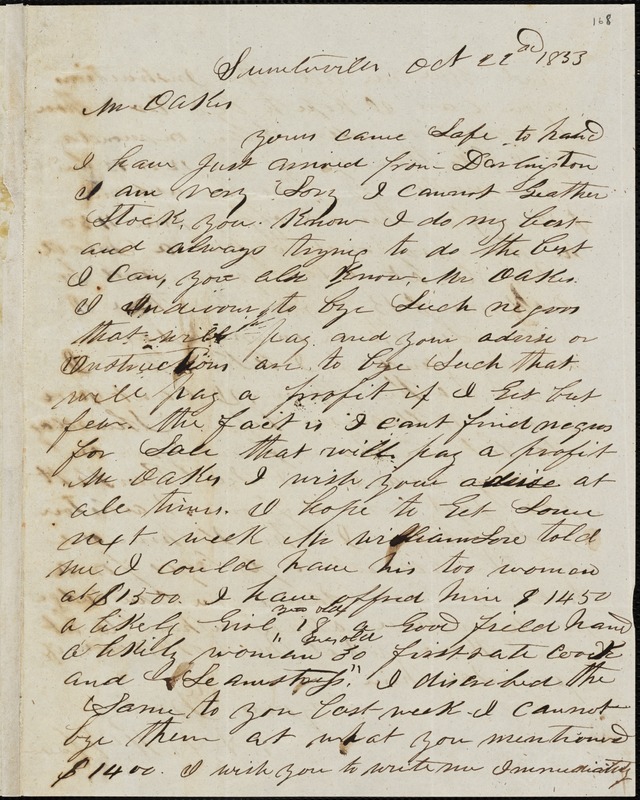 168
Sumterville Oct 22nd 1853
Mr Oakes
yours came Safe to hand
I have Just arrived from Darlington
I am very Sory I cannot Geather
Stock, you Know I do my best
and always trying to do the best
I Can, you als Know, Mr Oakes
I Indevour to bye Such negros
that will pay and your advise or
Instructions are to bye Such that
will pay a profit if I Get but
few. the fact is I cant find negros
for Sale that will pay a profit
Mr Oakes I wish your advise at
all times. I hope to Get Some
next week Mr told
me I could have his too woman
at $1500. I have offred him $1450
yrs old
a likely Girl 18 a Good field hand
yrs old
a likely woman "30 first rate cook
and Seamstress". I discribed the
Same to you last week I cannot
bye them at what you mentioned
$1400. I wish you to write me Immediatly